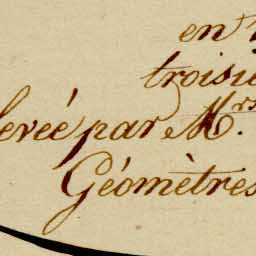 en
troisiè
levée par Mrs.
Géomètres